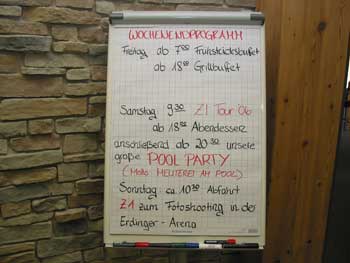 WOCHENENDPROGRAMM
Freitag ab 7⁰⁰ Frühstücksbuffet
ab 18⁰⁰ Grillbuffet
Samstag 9³⁰ Z1 Tour '06
ab 18⁰⁰ Abendessen
anschließend ab 20³⁰ unsere
große POOL PARTY
(Motto MEUTEREI AM POOL)
Sonntag: ca. 10³⁰ Abfahrt
Z1 zum Fotoshooting in der
Erdinger - Arena